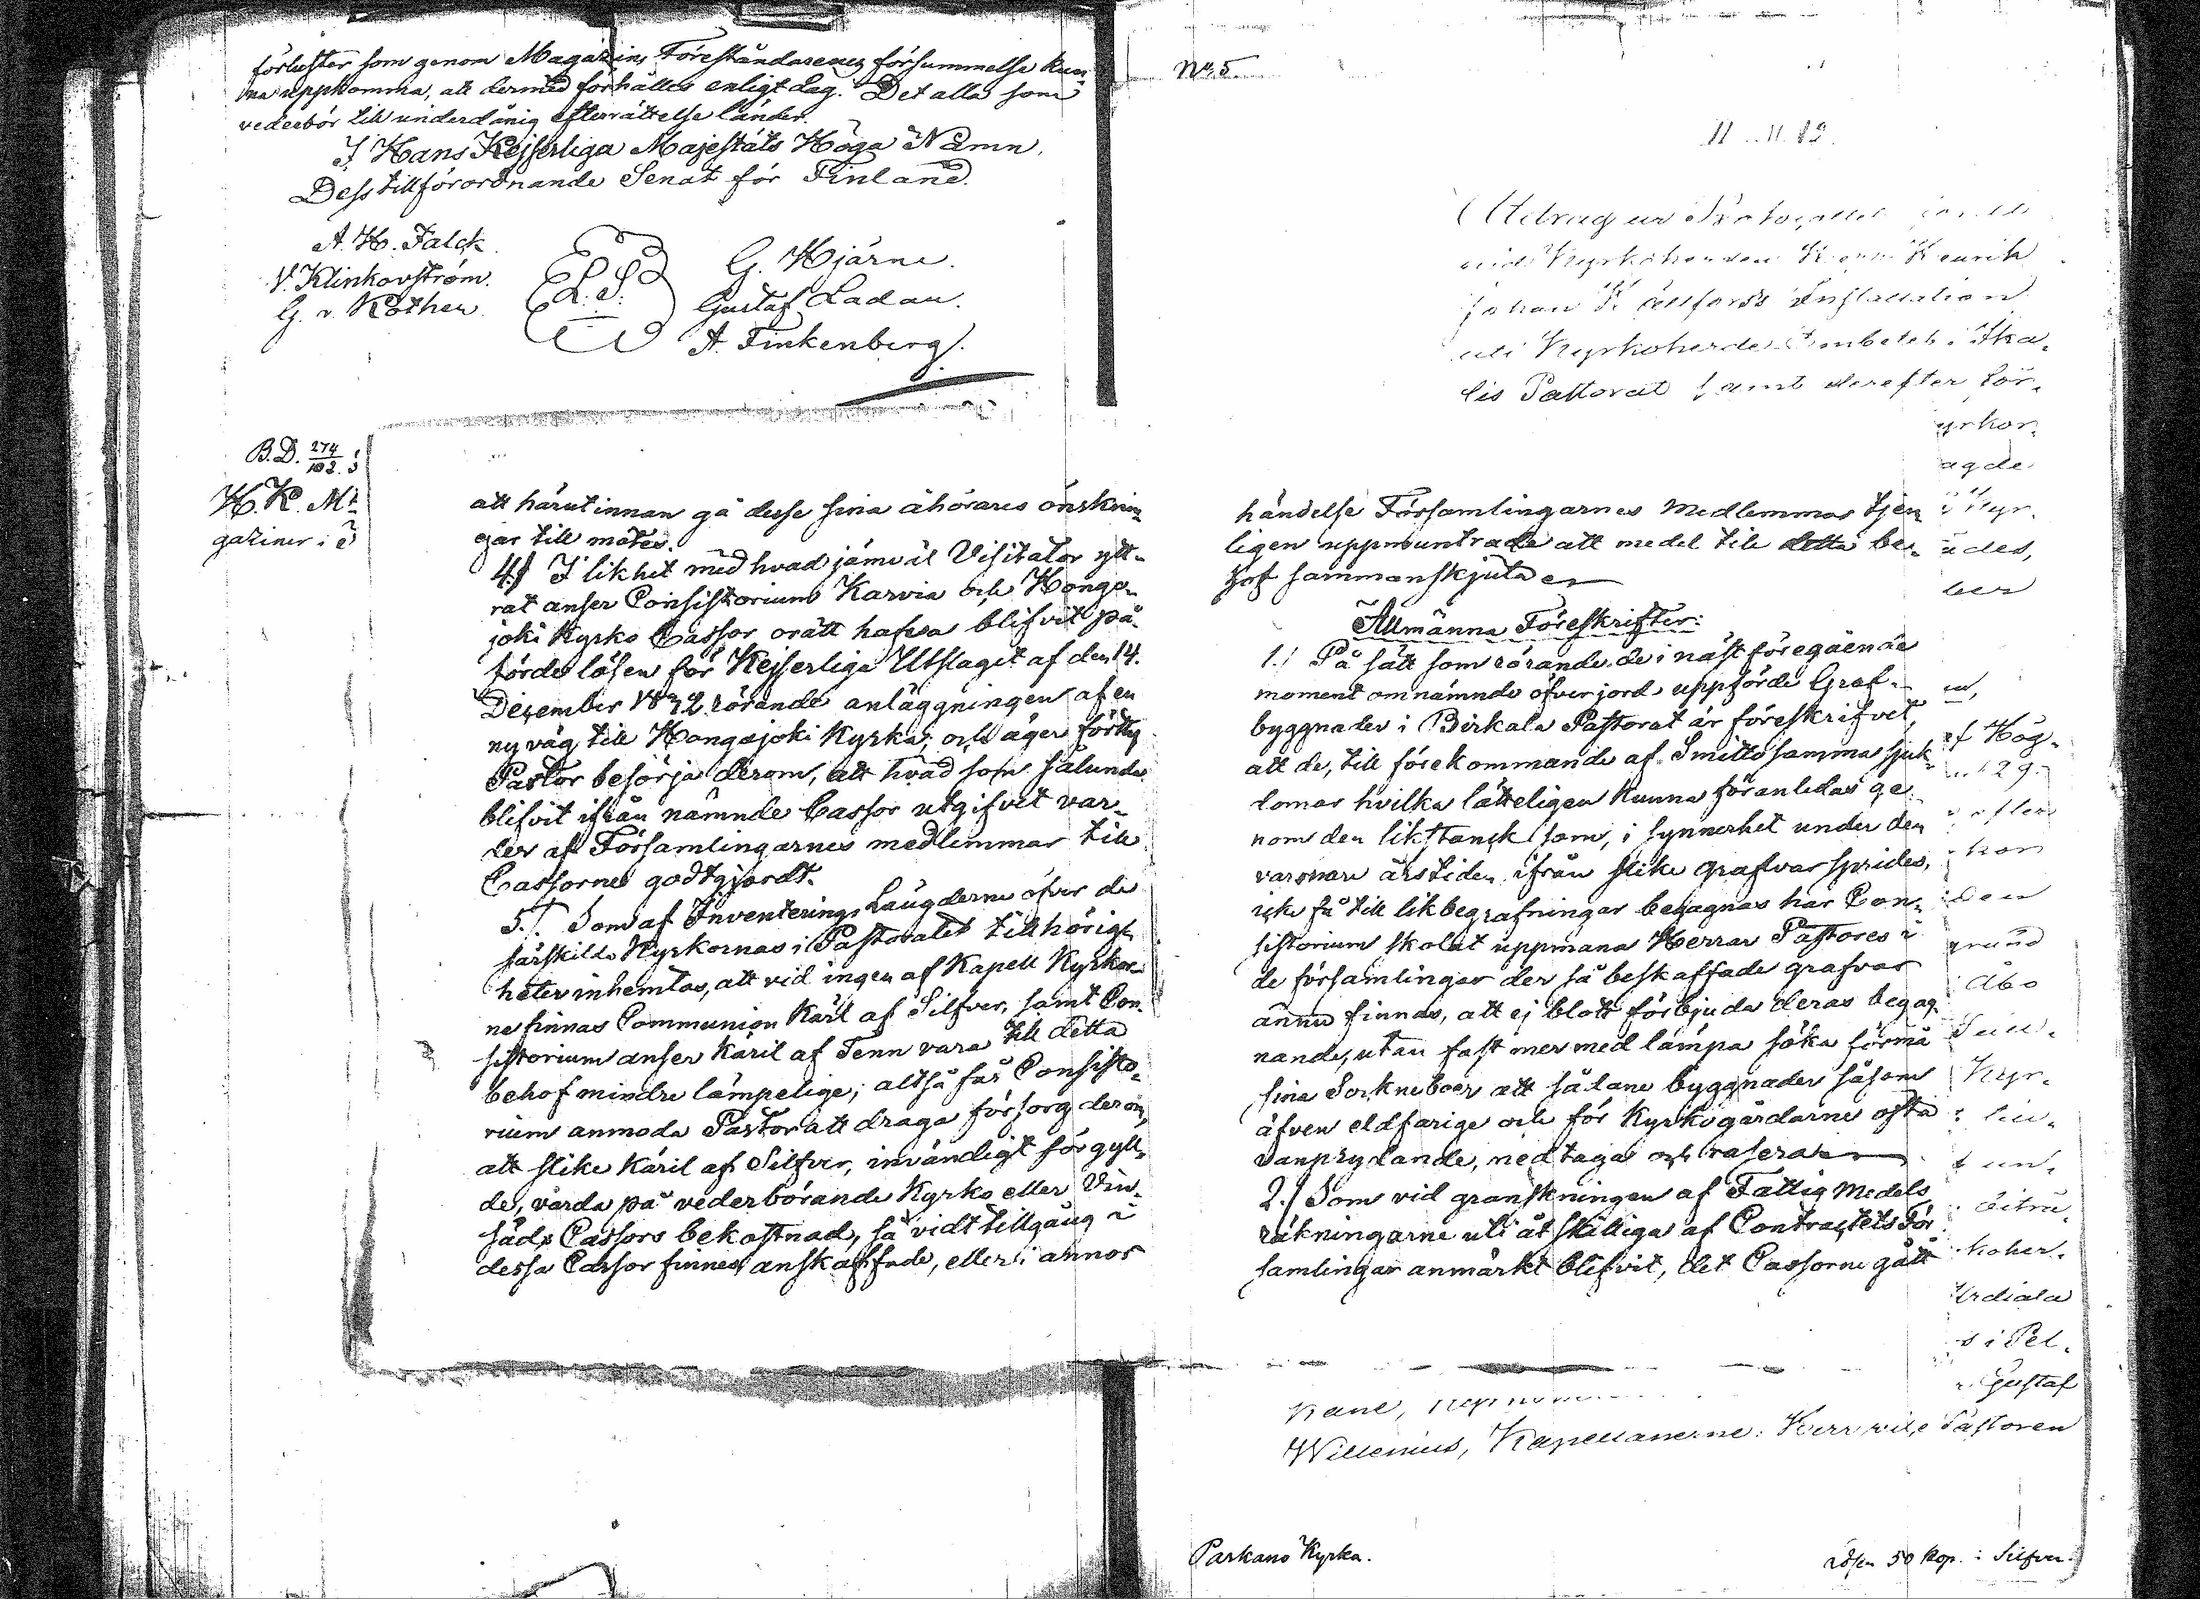 förluster som genom Magazins Föreståndarenes försummelse kun-
na uppkomma, att dermed förhålles enligt Lag. Det alla som
vederbör till underdånig efterrättelse länder.
I Hans Kejserliga Majestäts Höga Namn.
Dess tillförordnande Senat för Finland.
A. H. Falck.
V. Klinkovström.
G. v. Rothen.
L. S.
G. Hjärne.
Gustaf Ladau.
A. Finkenberg.
B. D. 274/102. 3
H. K. Mt
gaziner i
att härutinnan gå desse sina åhörares önsknin-
gar till mötes.
4.) I likhet med hvad jämväl Visitator ytt-
rat anser Consistorium Karvia och Honga-
joki Kyrko Cassor orätt hafva blifvit på-
förde lösen för Kejserliga Utslaget af den 14.
Dezember 1842 rörande anläggningen af en
ny väg till Hongojoki Kyrka, och äger förthy
Pastor besörja derom, att hvad som sålunda
blifvit ifrån nämnde Cassor utgifvit var-
der af Församlingarnes medlemmar till
Cassorne godtgjordt.
5.) Som af Inventerings Längderne öfver de
särskilda Kyrkornas i Pastoratet tillhörig-
heter inhemtas, att vid ingen af Kapell Kyrkor-
ne finnas Communion Käril af Silfver, samt Con-
sistorium anser käril af Tenn vara till detta
behof mindre lämpelige; altså får Consisto-
rium anmoda Pastor att draga försorg derom,
att slike käril af Silfver, invändigt förgyll-
de, varda på vederbörande Kyrko eller Vin-
säds Cassors bekostnad, så vidt tillgång i
dessa Cassor finnes, anskaffade, eller i annor
No. 5
Utdrag ur Protocollet
vid Kyrkoherden Henrik
Johan Installation
uti Kyrkoherde Embetet i Ika-
lis Pastorat samt derefter för-
yrkor-
agde
händelse Församlingarnes medlemmar tjen-
ligen uppmuntrade att medel till detta be-
hof sammanskjuta
Allmänna Föreskrifter:
1.) På sätt som rörande de i näst föregående
moment omnämnde öfver jord uppförde Graf-
byggnader i Birkala Pastorat är föreskrifvet,
att de, till förekommande af Smittosamma sjuk-
domar hvilka lätteligen kunna föranledas ge-
nom den likstanck som, i synnerhet under den
varmare årstiden ifrån slike grafvar sprides,
icke få till likbegrafningar begagnas har Con-
sistorium skolat uppmana Herrar Pastores i
de församlingar der så beskaffade grafvar
ännu finnas, att ej blott förbjuda deras begag-
nande, utan fast mer med lämpa söka förmå
sina Sockneboer att sådane byggnader såsom
äfven eldfarige och för Kyrkogårdarne ofta
vanprydande, nedtaga och rasera
2.) Som vid granskningen af Fattig Medels
räkningarne uti åtskilliga af Contractets För-
samlingar anmärkt blifvit, det Cassorne gått
ber
af Hög-
29.
efter
den
grund
Åbo
Kyr-
koher-
Urdiala
s i Pel-
Gustaf
Willenius, Kapellanerne: Herr vice Pastoren
Parkano Kyrka.
Lösen 50 kop. i Silfver.